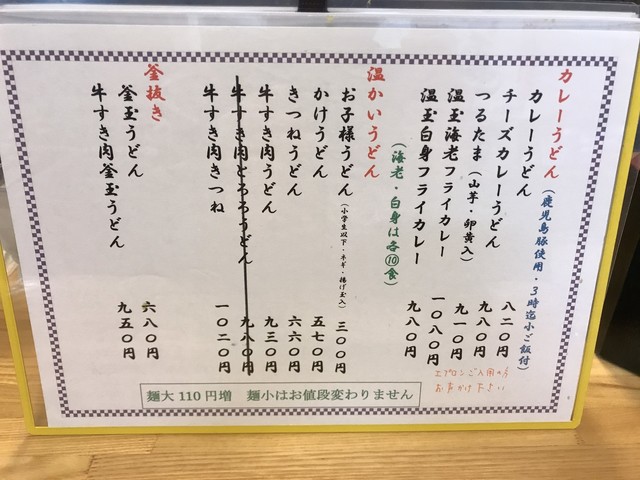 カレーうどん
(鹿児島豚使用・3時迄小ご飯付)
カレーうどん 八二〇円
チーズカレーうどん 九八〇円
つるたま(山芋・卵黄入) 九一〇円
温玉海老フライカレー 一〇八〇円
温玉白身フライカレー 九八〇円
(海老・白身は各⑩食)
エプロンご入用の方
お声がけ下さい
温かいうどん
お子様うどん(小学生以下・ネギ・揚げ玉入) 三〇〇円
かけうどん 五七〇円
きつねうどん 六六〇円
牛すき肉うどん 九三〇円
牛すき肉とろろうどん 九八〇円
牛すき肉きつね 一〇二〇円
釜抜き
釜玉うどん 六八〇円
牛すき肉釜玉うどん 九五〇円
麺大110円増 麺小はお値段変わりません